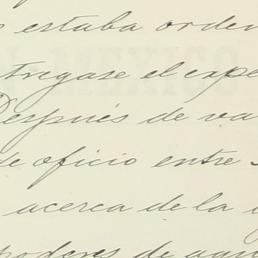 estaba orden
tregase el expe
Despues de va
de oficio entre
acerca de la
poderes de aqu